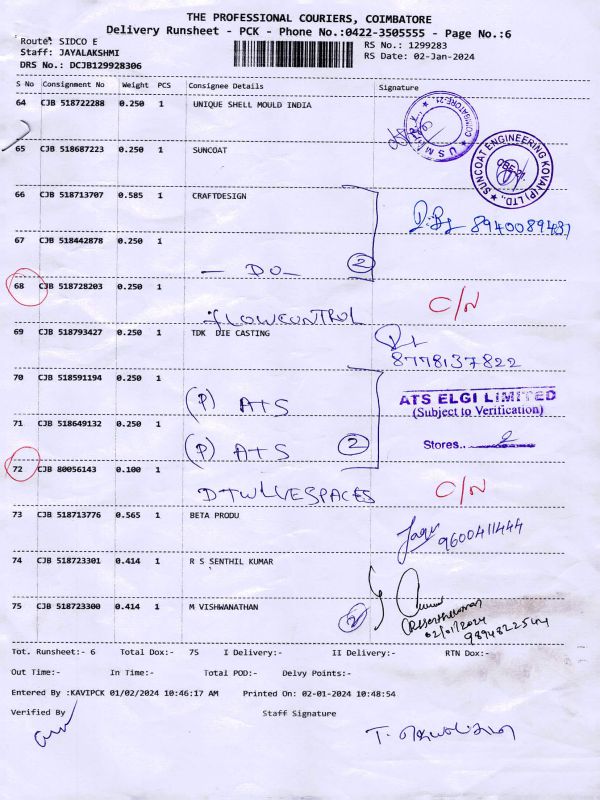 THE PROFESSIONAL COURIERS, COIMBATORE
Delivery Runsheet - PCK - Phone No.:0422-3505555 - Page No.:6
Route: SIDCO E
RS No.: 1299283
Staff: JAYALAKSHMI
RS Date: 02-Jan-2024
DRS No.: DCJB129928306
S No Consignment No Weight PCS Consignee Details Signature
64 CJB 518722288 0.250 1 UNIQUE SHELL MOULD INDIA
COIMBATORE-21
65 CJB 518687223 0.250 1 SUNCOAT
SUNCOAT ENGINEERING KOVAI (P) LTD.,
66 CJB 518713707 0.585 1 CRAFTDESIGN
8940089431
67 CJB 518442878 0.250 1
- DO - 2
68 CJB 518728203 0.250 1
flowCONTROL C/N
69 CJB 518793427 0.250 1 TDK DIE CASTING
8778137822
70 CJB 518591194 0.250 1
(P) ATS
ATS ELGI LIMITED
(Subject to Verification)
71 CJB 518649132 0.250 1
(P) ATS 2
Stores..
72 CJB 80056143 0.100 1
C/N
73 CJB 518713776 0.565 1 BETA PRODU
9600411444
74 CJB 518723301 0.414 1 R S SENTHIL KUMAR
75 CJB 518723300 0.414 1 M VISHWANATHAN
2
02/01/2024
9894822544
Tot. Runsheet:- 6 Total Dox:- 75 I Delivery:- II Delivery:- RTN Dox:-
Out Time:- In Time:- Total POD:- Delvy Points:-
Entered By :KAVIPCK 01/02/2024 10:46:17 AM Printed On: 02-01-2024 10:48:54
Verified By Staff Signature